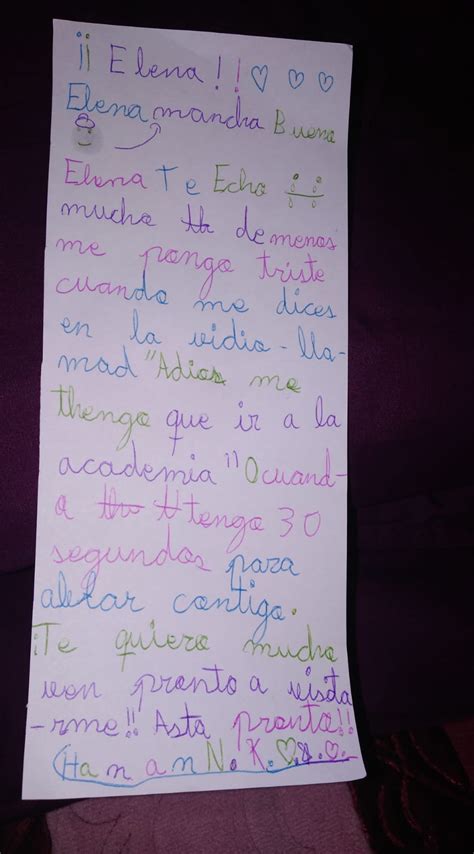 ¡¡Elena!! ♡ ♡ ♡
Elena mancha Buena
Elena Te Echo
mucho de menos
me pongo triste
cuando me dices
en la vidio-lla-
mad "Adios me
thengo que ir a la
academia" O cuand-
o tengo 30
segundos para
ablar contigo.
¡Te quiero mucho
ven pronto a visita
-rme!! Asta pronto!!
(Hanan N. K. ♡.8.♡.